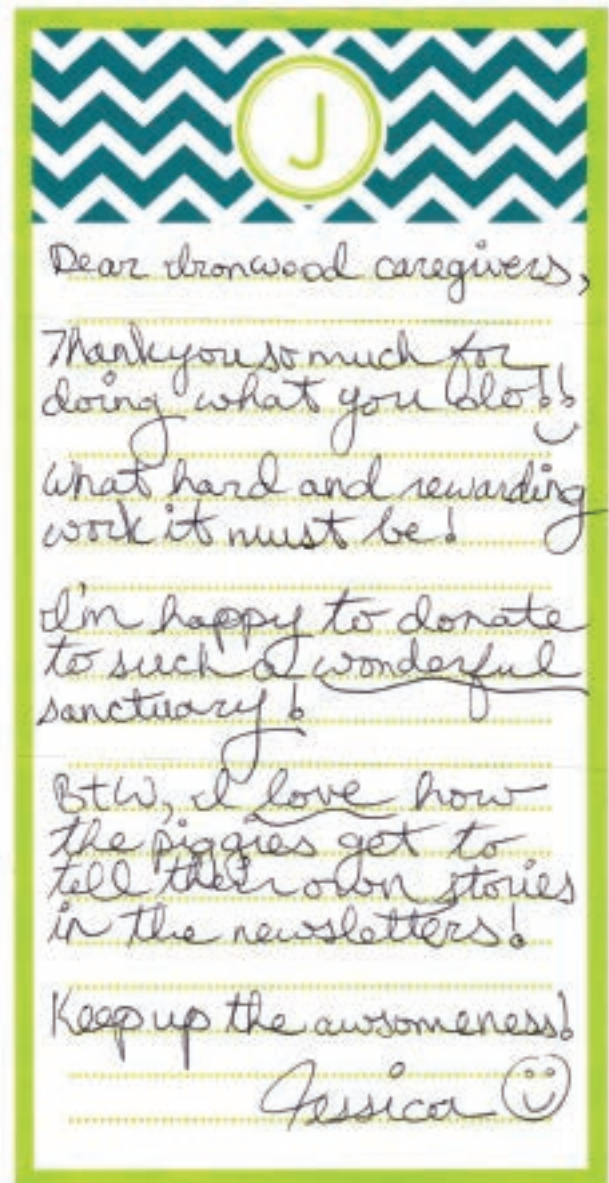 J
Dear Ironwood caregivers,
Thank you so much for
doing what you do!!
What hard and rewarding
work it must be!
I'm happy to donate
to such a wonderful
sanctuary!
BtW, I love how
the piggies get to
tell their own stories
in the newsletters!
Keep up the awsomeness!
Jessica